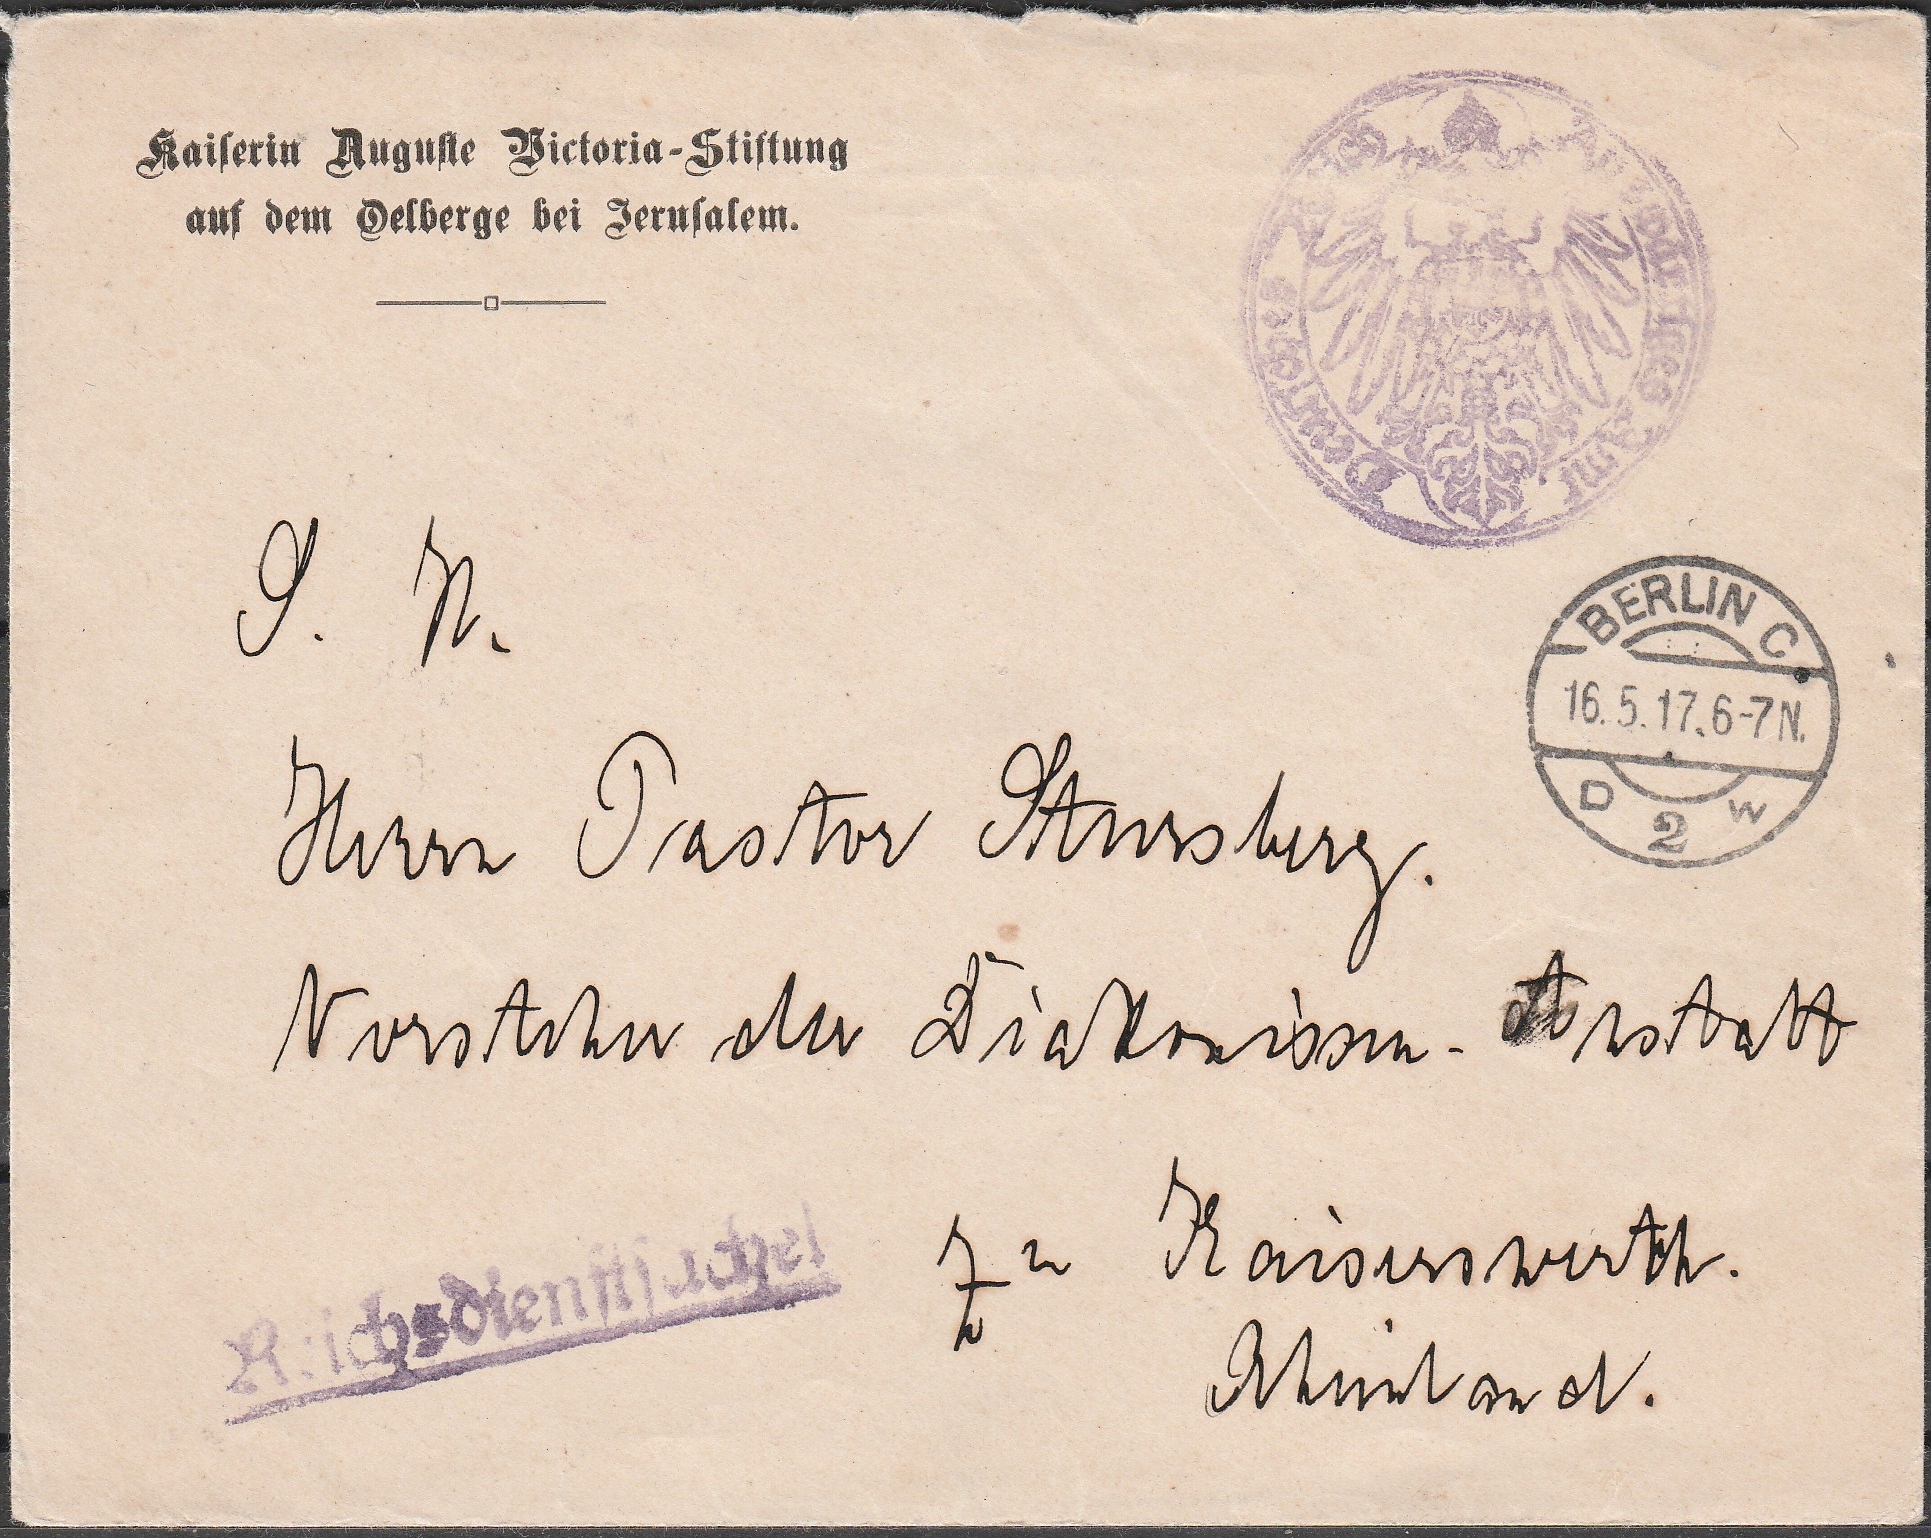 Kaiserin Auguste Victoria-Stiftung
auf dem Oelberge bei Jerusalem.
Deutsches Reich Auswärtiges Amt
S. H.
BERLIN C.
16.5.17.6-7N.
D 2 W
Herrn Pastor Stursberg.
Vorsteher der Diakonissen-Anstalt
zu Kaiserswerth.
Rheinland.
Reichsdienstsache!